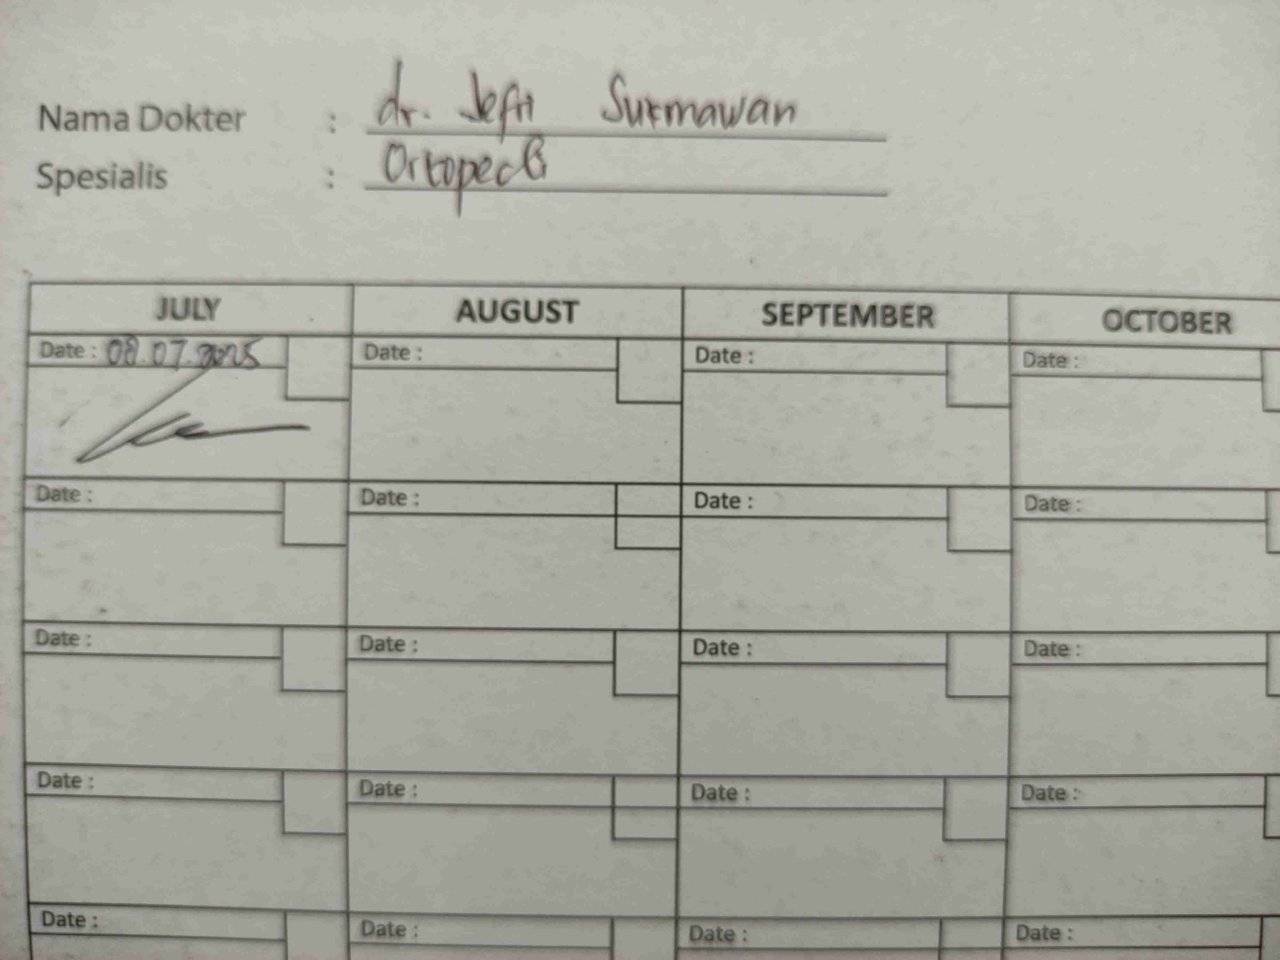 Nama Dokter : dr. Jefri Surmawan
Spesialis : Ortopedi
JULY AUGUST SEPTEMBER OCTOBER
Date : 08.07.2025 Date : Date : Date :
Date : Date : Date : Date :
Date : Date : Date : Date :
Date : Date : Date : Date :
Date : Date : Date : Date :